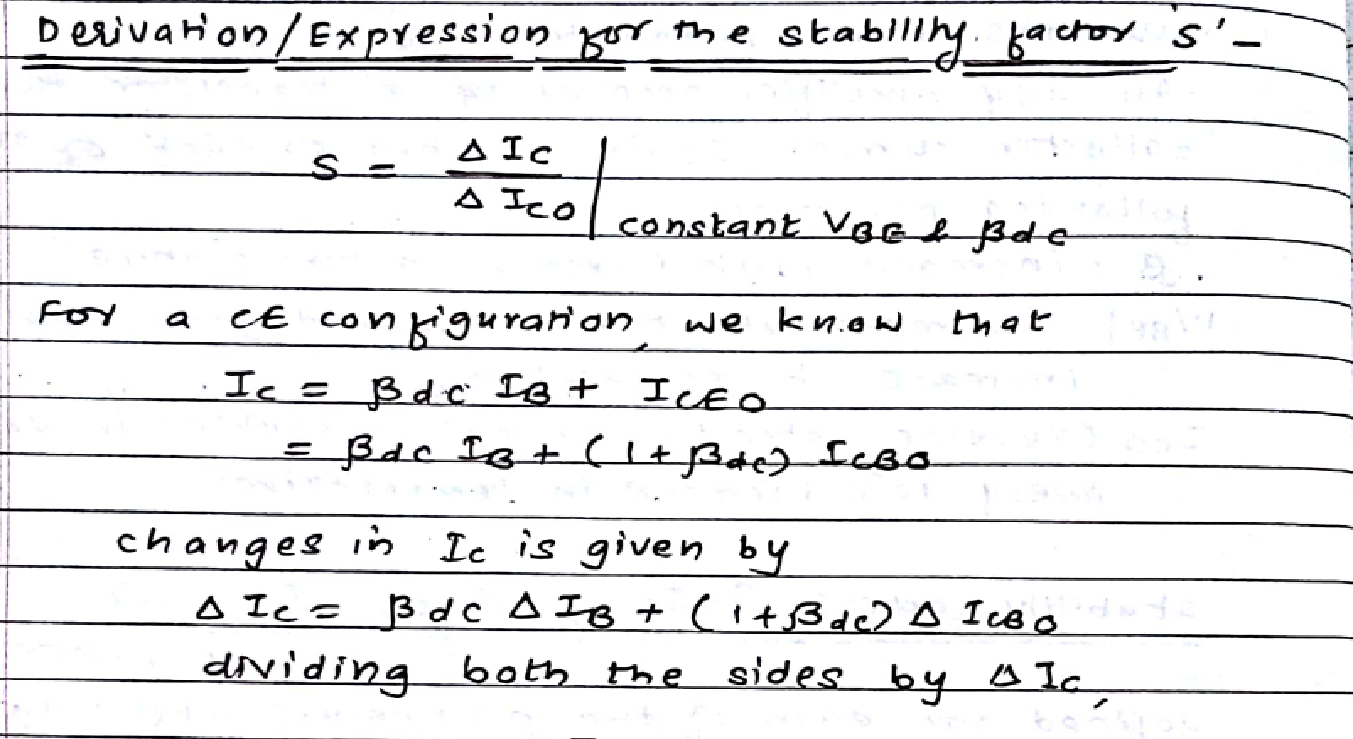 Derivation/Expression for the stability factor 's' -
S = ΔIC / ΔICO | constant VBE & βdc
For a CE configuration, we know that
IC = βdc IB + ICEO
= βdc IB + (1+βdc) ICBO
changes in IC is given by
ΔIC = βdc ΔIB + (1+βdc) ΔICBO
dividing both the sides by ΔIC,